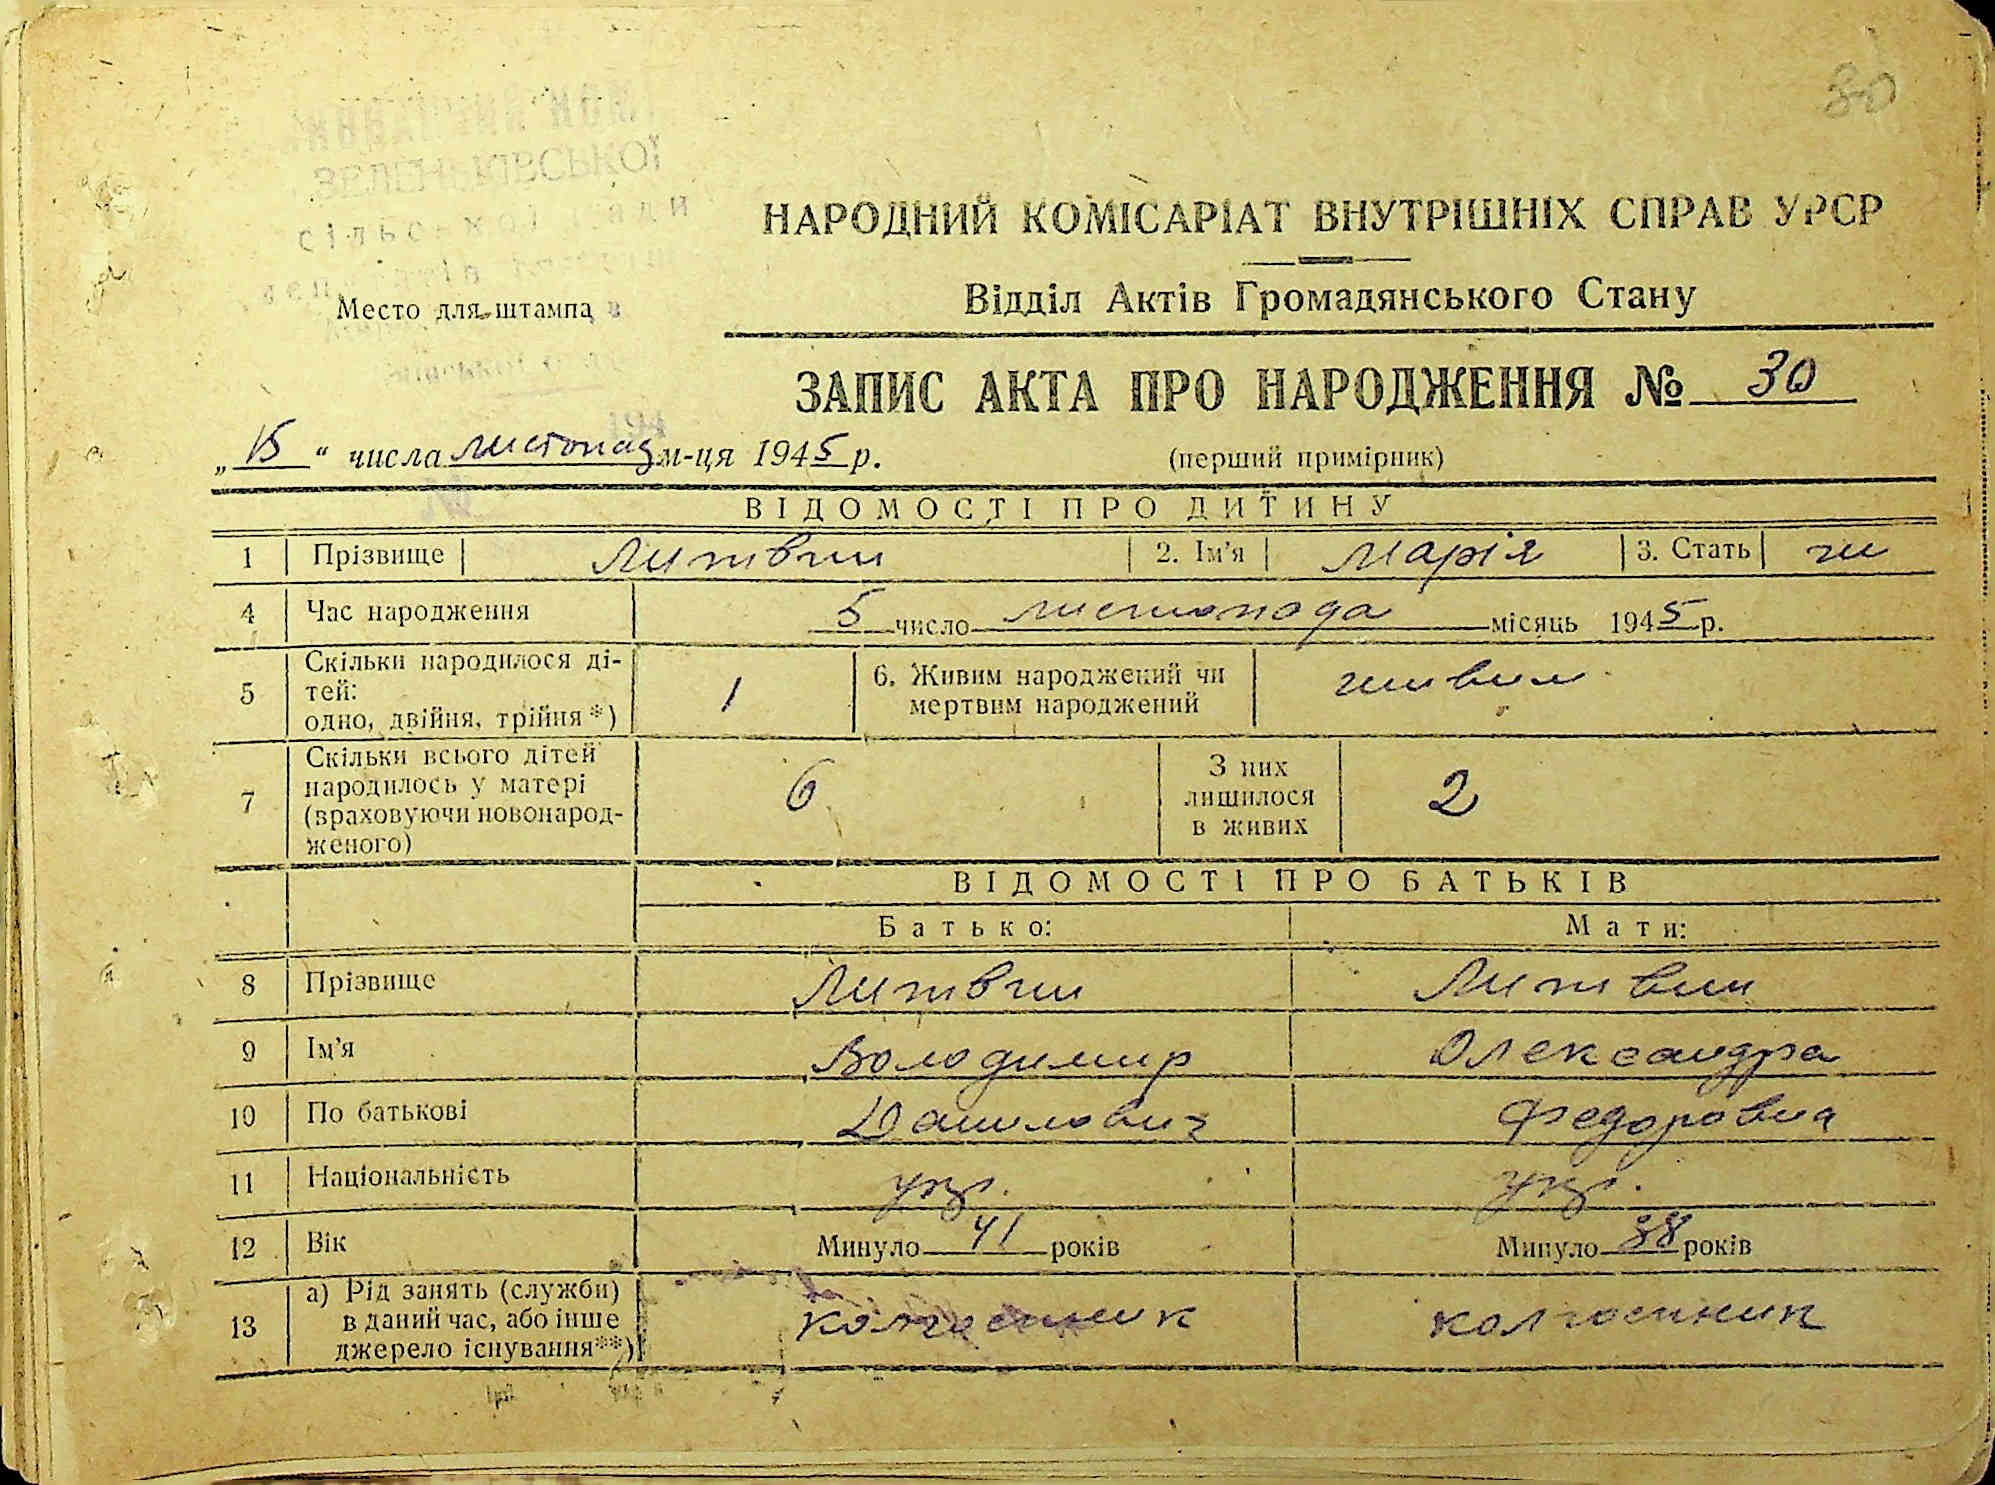 30
ЗЕЛЕНЬКІВСЬКОЇ
сільської ради
НАРОДНИЙ КОМІСАРІАТ ВНУТРІШНІХ СПРАВ УРСР
Место для штампа
Відділ Актів Громадянського Стану
ЗАПИС АКТА ПРО НАРОДЖЕННЯ № 30
„15“ числа листопад м-ця 1945 р.
(перший примірник)
ВІДОМОСТІ ПРО ДИТИНУ
1 Прізвище Литвин 2. Ім'я Марія 3. Стать ж
4 Час народження 5 число листопада місяць 1945 р.
5 Скільки народилося ді-
тей:
одно, двійня, трійня*) 1
6. Живим народжений чи
мертвим народжений живим
7 Скільки всього дітей
народилось у матері
(враховуючи новонарод-
женого) 6
З них
лишилося
в живих 2
ВІДОМОСТІ ПРО БАТЬКІВ
Батько: Мати:
8 Прізвище Литвин Литвин
9 Ім'я Володимир Олександра
10 По батькові Данилович Федоровна
11 Національність укр. укр.
12 Вік Минуло 41 років Минуло 38 років
13 а) Рід занять (служби)
в даний час, або інше
джерело існування**) колгоспник колгоспник